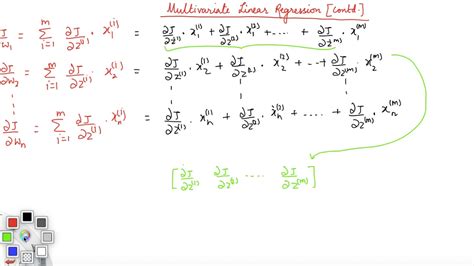 Multivariate Linear Regression [contd.]
∂J/∂w₁ = Σᵢ₌₁ᵐ ∂J/∂z⁽ⁱ⁾ · x₁⁽ⁱ⁾ = ∂J/∂z⁽¹⁾ · x₁⁽¹⁾ + ∂J/∂z⁽²⁾ · x₁⁽²⁾ + ---- + ∂J/∂z⁽ᵐ⁾ · x₁⁽ᵐ⁾
∂J/∂w₂ = Σᵢ₌₁ᵐ ∂J/∂z⁽ⁱ⁾ · x₂⁽ⁱ⁾ = ∂J/∂z⁽¹⁾ · x₂⁽¹⁾ + ∂J/∂z⁽²⁾ · x₂⁽²⁾ + --+ ∂J/∂z⁽ᵐ⁾ · x₂⁽ᵐ⁾
∂J/∂wₙ = Σᵢ₌₁ᵐ ∂J/∂z⁽ⁱ⁾ · xₙ⁽ⁱ⁾ = ∂J/∂z⁽¹⁾ · xₙ⁽¹⁾ + ∂J/∂z⁽²⁾ · xₙ⁽²⁾ + .... + ∂J/∂z⁽ᵐ⁾ · xₙ⁽ᵐ⁾
[∂J/∂z⁽¹⁾ ∂J/∂z⁽²⁾ .... ∂J/∂z⁽ᵐ⁾]